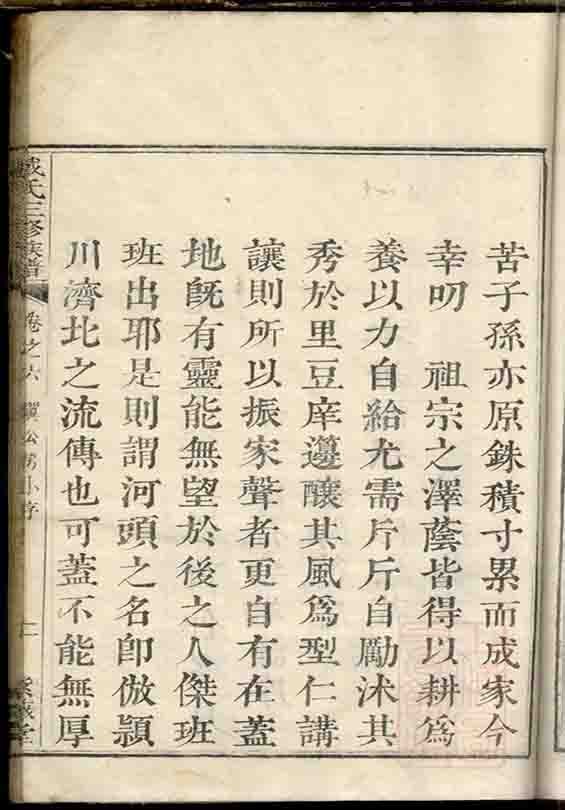 苦子孫亦原銖積寸累而成家今
幸叨　祖宗之澤蔭皆得以耕爲
養以力自給尤需斤斤自勵沭其
秀於里豆庠簻釀其風爲型仁講
讓則所以振家聲者更自有在蓋
地既有靈能無望於後之人傑班
班出耶是則謂河頭之名即倣潁
川濟北之流傳也可蓋不能無厚
戴氏三修族譜
卷之六
公房小序